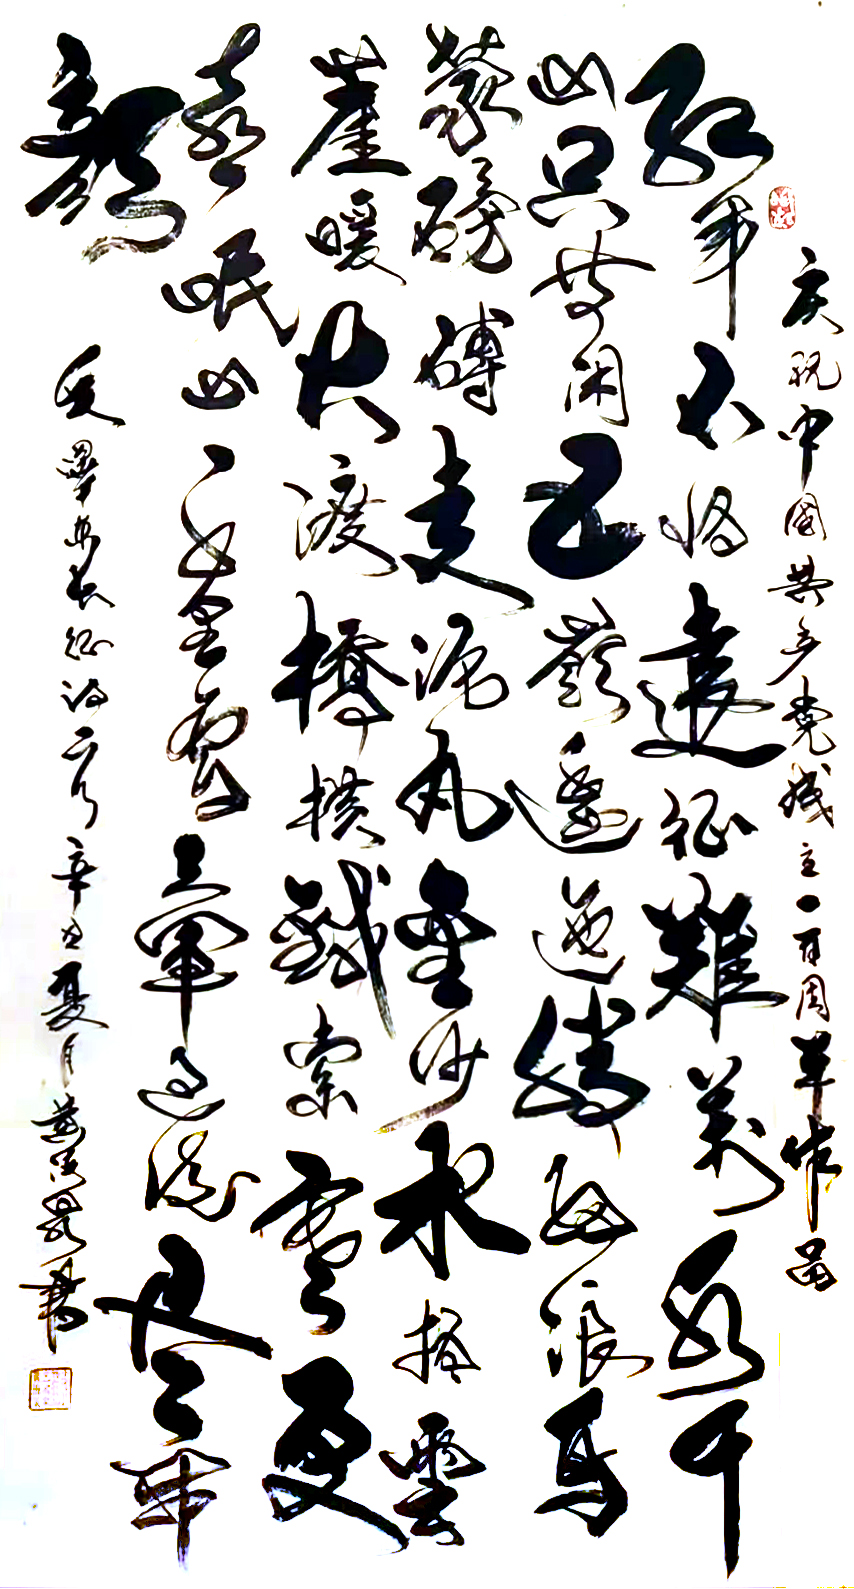 庆祝中國共产党成立一百周年作品
红军不怕遠征難萬水千
山只等闲五嶺逶迤腾细浪烏
蒙磅礴走泥丸金沙水拍雲
崖暖大渡橋横鐵索寒更
喜岷山千里雪三軍过後尽开
颜
澤东长征诗一首辛丑夏月書